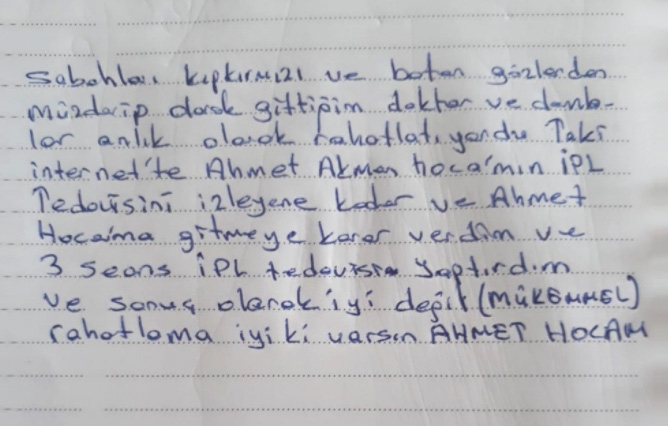 Sabahları kıpkırmızı ve batan gözlerden
müzdarip olarak gittiğim doktor ve damla-
lar anlık olarak rahatlatıyordu Taki
internet'te Ahmet Akman hoca'mın İPL
Tedavisini izleyene kadar ve Ahmet
Hocama gitmeye karar verdim ve
3 seans İPL tedavisi yaptırdım
ve sonuç olarak iyi değil (MÜKEMMEL)
rahatlama iyi ki varsın AHMET HOCAM